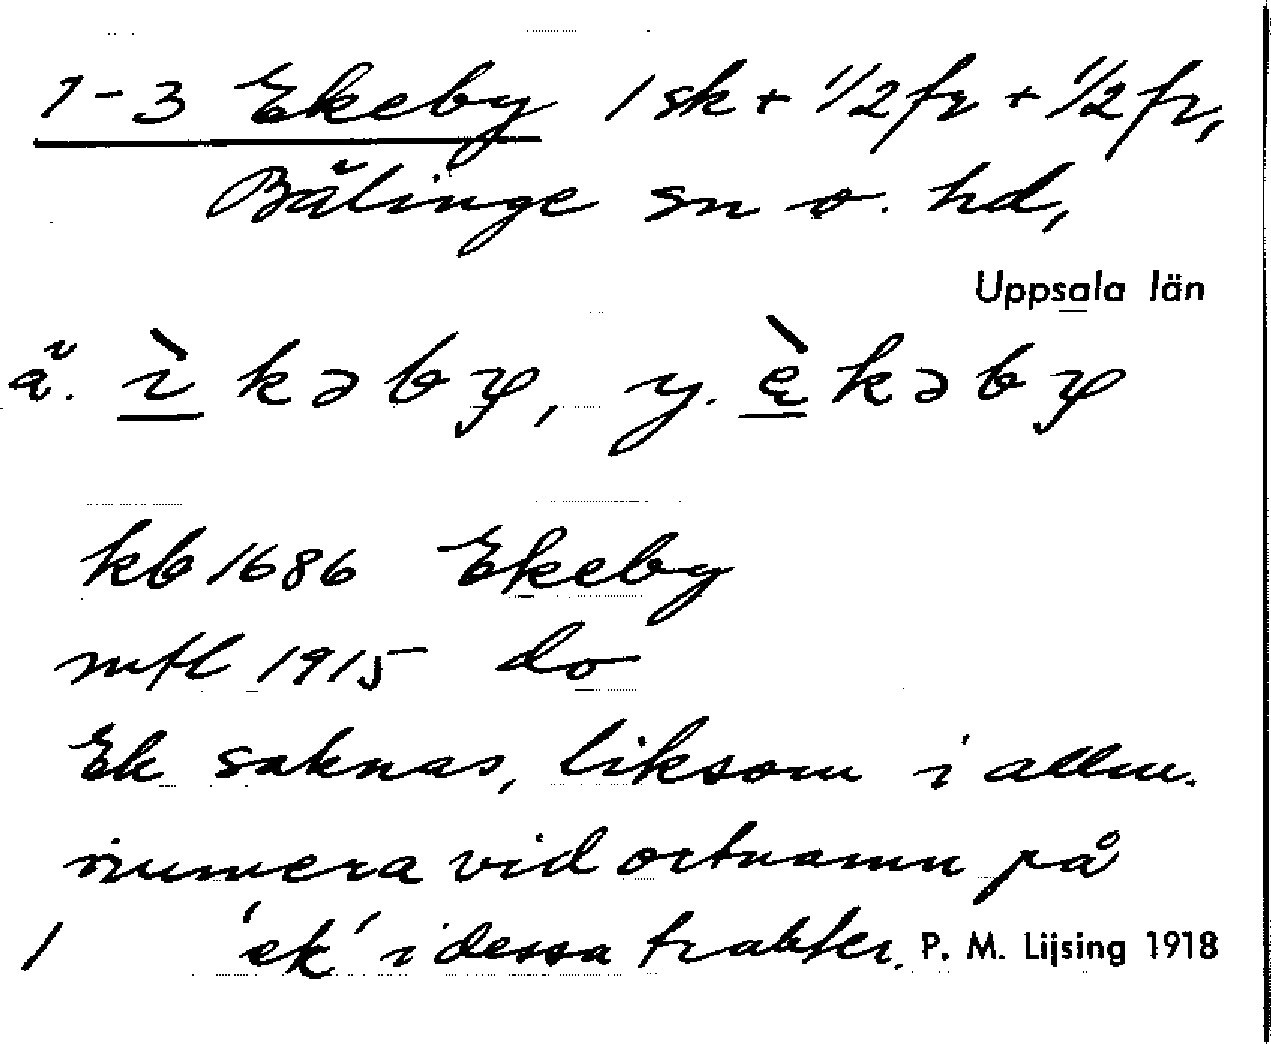 1-3 Ekeby 1 sk + 1/2 fr + 1/2 fr,
Bälinge sn o. hd,
Uppsala län
ä. ì̱kəby, y. è̱kəby
kb 1686 Ekeby
mtl 1915 do
Ek saknas, liksom i allm.
numera vid ortnamn på
1 'ek' i dessa trakter. P. M. Lijsing 1918